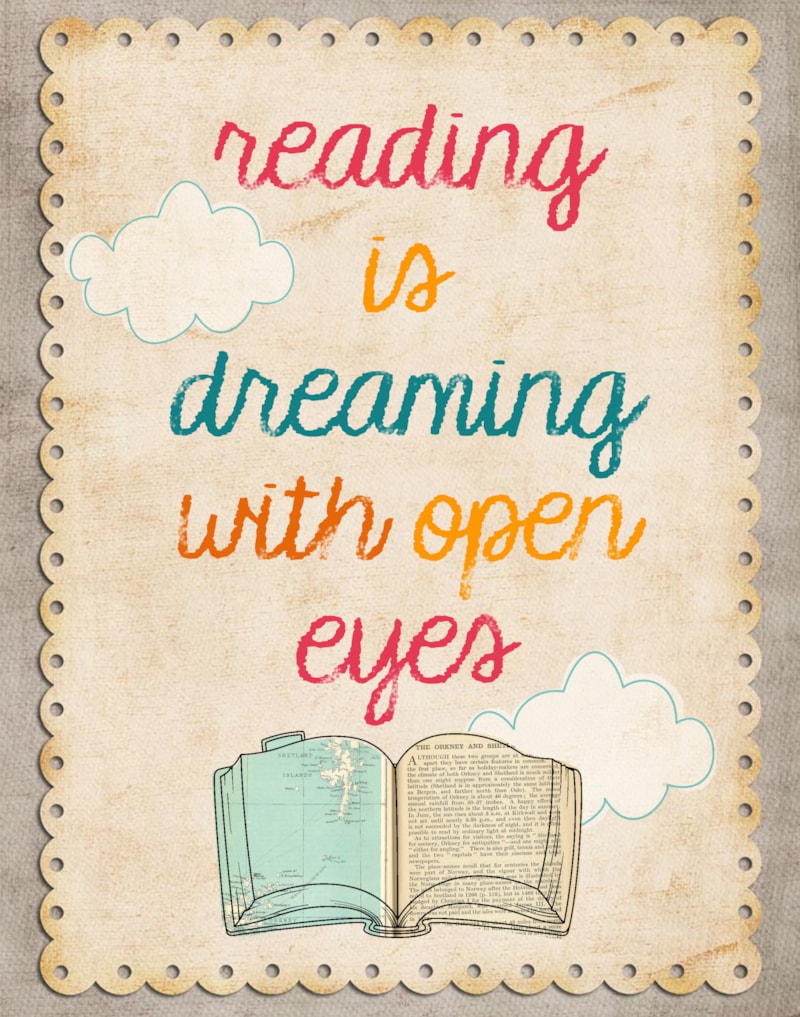 reading
is
dreaming
with open
eyes
SHETLAND
ISLANDS
THE ORKNEY AND
ALTHOUGH these two groups are at
apart they have certain features in common,
the first place, so far as holiday-makers are
the climate of both Orkney and Shetland is much
than one might suppose from a consideration of
latitude (Shetland is in approximately the same latitude
as Bergen, and farther north than Oslo). The
temperature of Orkney is about 46 degrees; the
annual rainfall from 35-37 inches. A happy effect
the northern latitude is the length of the day in summer.
In June, the sun rises about 3 a.m. at Kirkwall and
not set until nearly 9.30 p.m., and even then
is not succeeded by the darkness of night, and it is
possible to read by ordinary light at midnight.
As to attractions for visitors, the saying is
for scenery, Orkney for antiquities"—and one might
"either for angling." There is also golf, tennis and
and the two "capitals" have their cinemas and
newspapers.
The place-names recall that for centuries the islands
were part of Norway, and the vigour with which the
Norwegians
the Norwegian in many place-names.
belonged to Norway after the
to Scotland in
by Christian I for the payment of the
was not paid and the isles were